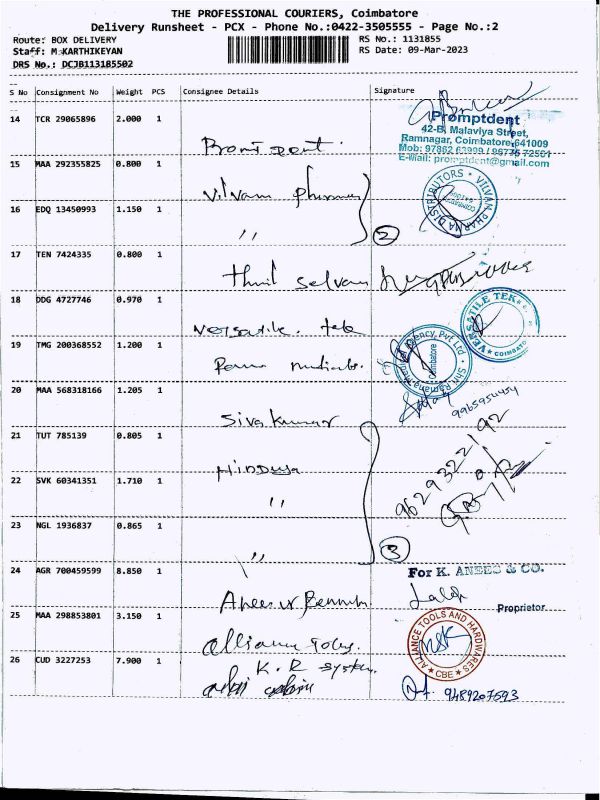 THE PROFESSIONAL COURIERS, Coimbatore
Delivery Runsheet - PCX - Phone No.:0422-3505555 - Page No.:2
Route: BOX DELIVERY
RS No.: 1131855
Staff: M KARTHIKEYAN
RS Date: 09-Mar-2023
DRS No.: DCJB113185502
S No Consignment No Weight PCS Consignee Details Signature
14 TCR 29065896 2.000 1
Promptdent
42-B, Malaviya Street,
Ramnagar, Coimbatore-641009
E-Mail: promptdent@gmail.com
15 MAA 292355825 0.800 1
Vilvam pharma
VILVAM PHARMA DISTRIBUTORS
COIMBATORE
16 EDQ 13450993 1.150 1
" 2
17 TEN 7424335 0.800 1
selvam
18 DDG 4727746 0.970 1
Versatile tek
VERSATILE TEK
COIMBATO
19 TMG 200368552 1.200 1
Agency Pvt Ltd
Coimbatore
20 MAA 568318166 1.205 1
Siva Kumar
9965954454
21 TUT 785139 0.805 1
Hinduja
9629322192
22 SVK 60341351 1.710 1
"
23 NGL 1936837 0.865 1
" 3
24 AGR 700459599 8.850 1
For K. ANEES & CO.
Proprietor
25 MAA 298853801 3.150 1
Alliance Tools
ALLIANCE TOOLS AND HARDWARES
CBE
26 CUD 3227253 7.900 1
K. R system
9489207593